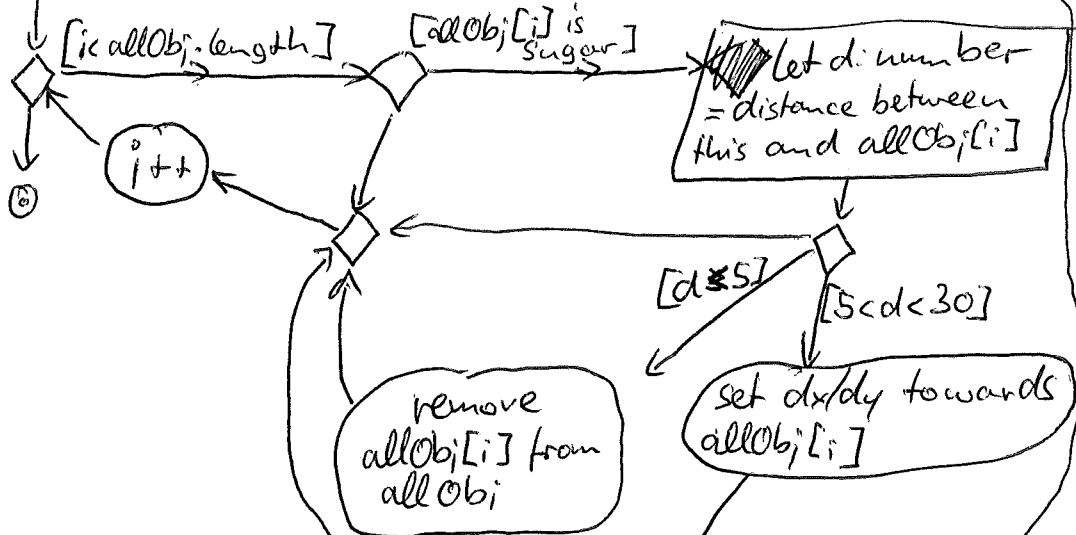 [i< allObj.length]
[allObj[i] is
sugar]
let d: number
= distance between
this and allObj[i]
i++
[d≤5]
[5<d<30]
remove
allObj[i] from
allObj
set dx/dy towards
allObj[i]